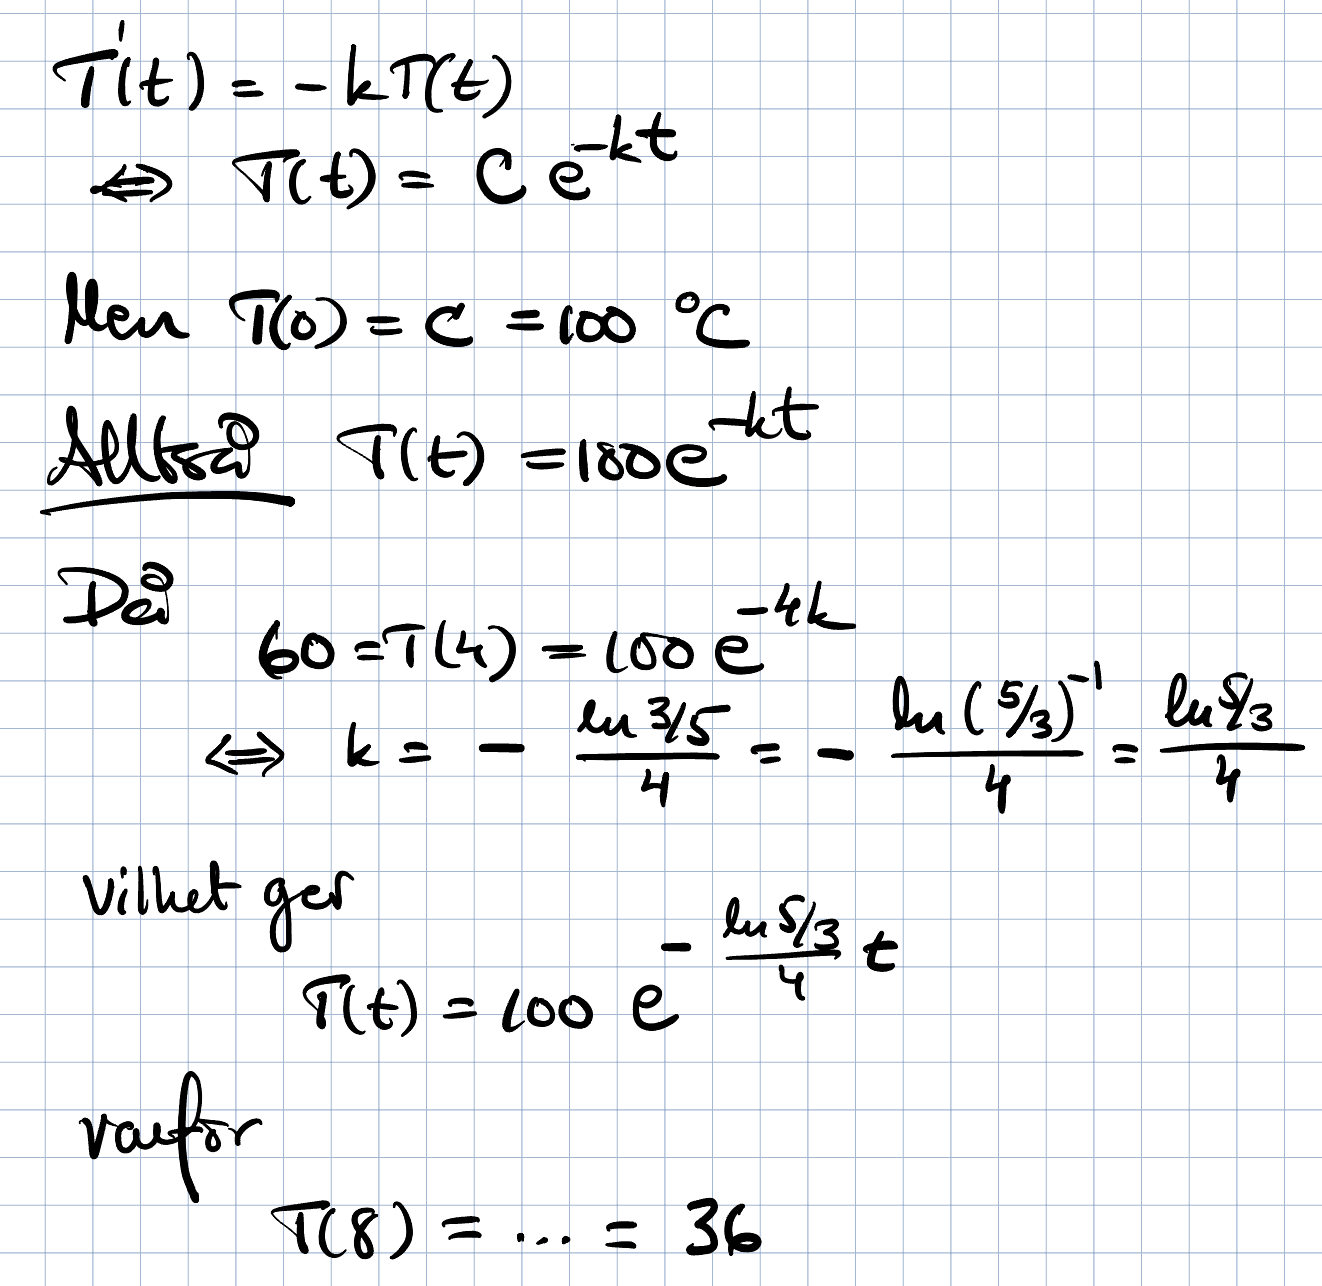 T'(t) = -kT(t)
⇔ T(t) = C e^{-kt}
Men T(0) = C = 100 °C
Alltså T(t) = 100e^{-kt}
Då
60 = T(4) = 100 e^{-4k}
⇔ k = - \frac{ln 3/5}{4} = - \frac{ln (5/3)^{-1}}{4} = \frac{ln 5/3}{4}
vilket ger
T(t) = 100 e^{- \frac{ln 5/3}{4} t}
varför
T(8) = ... = 36